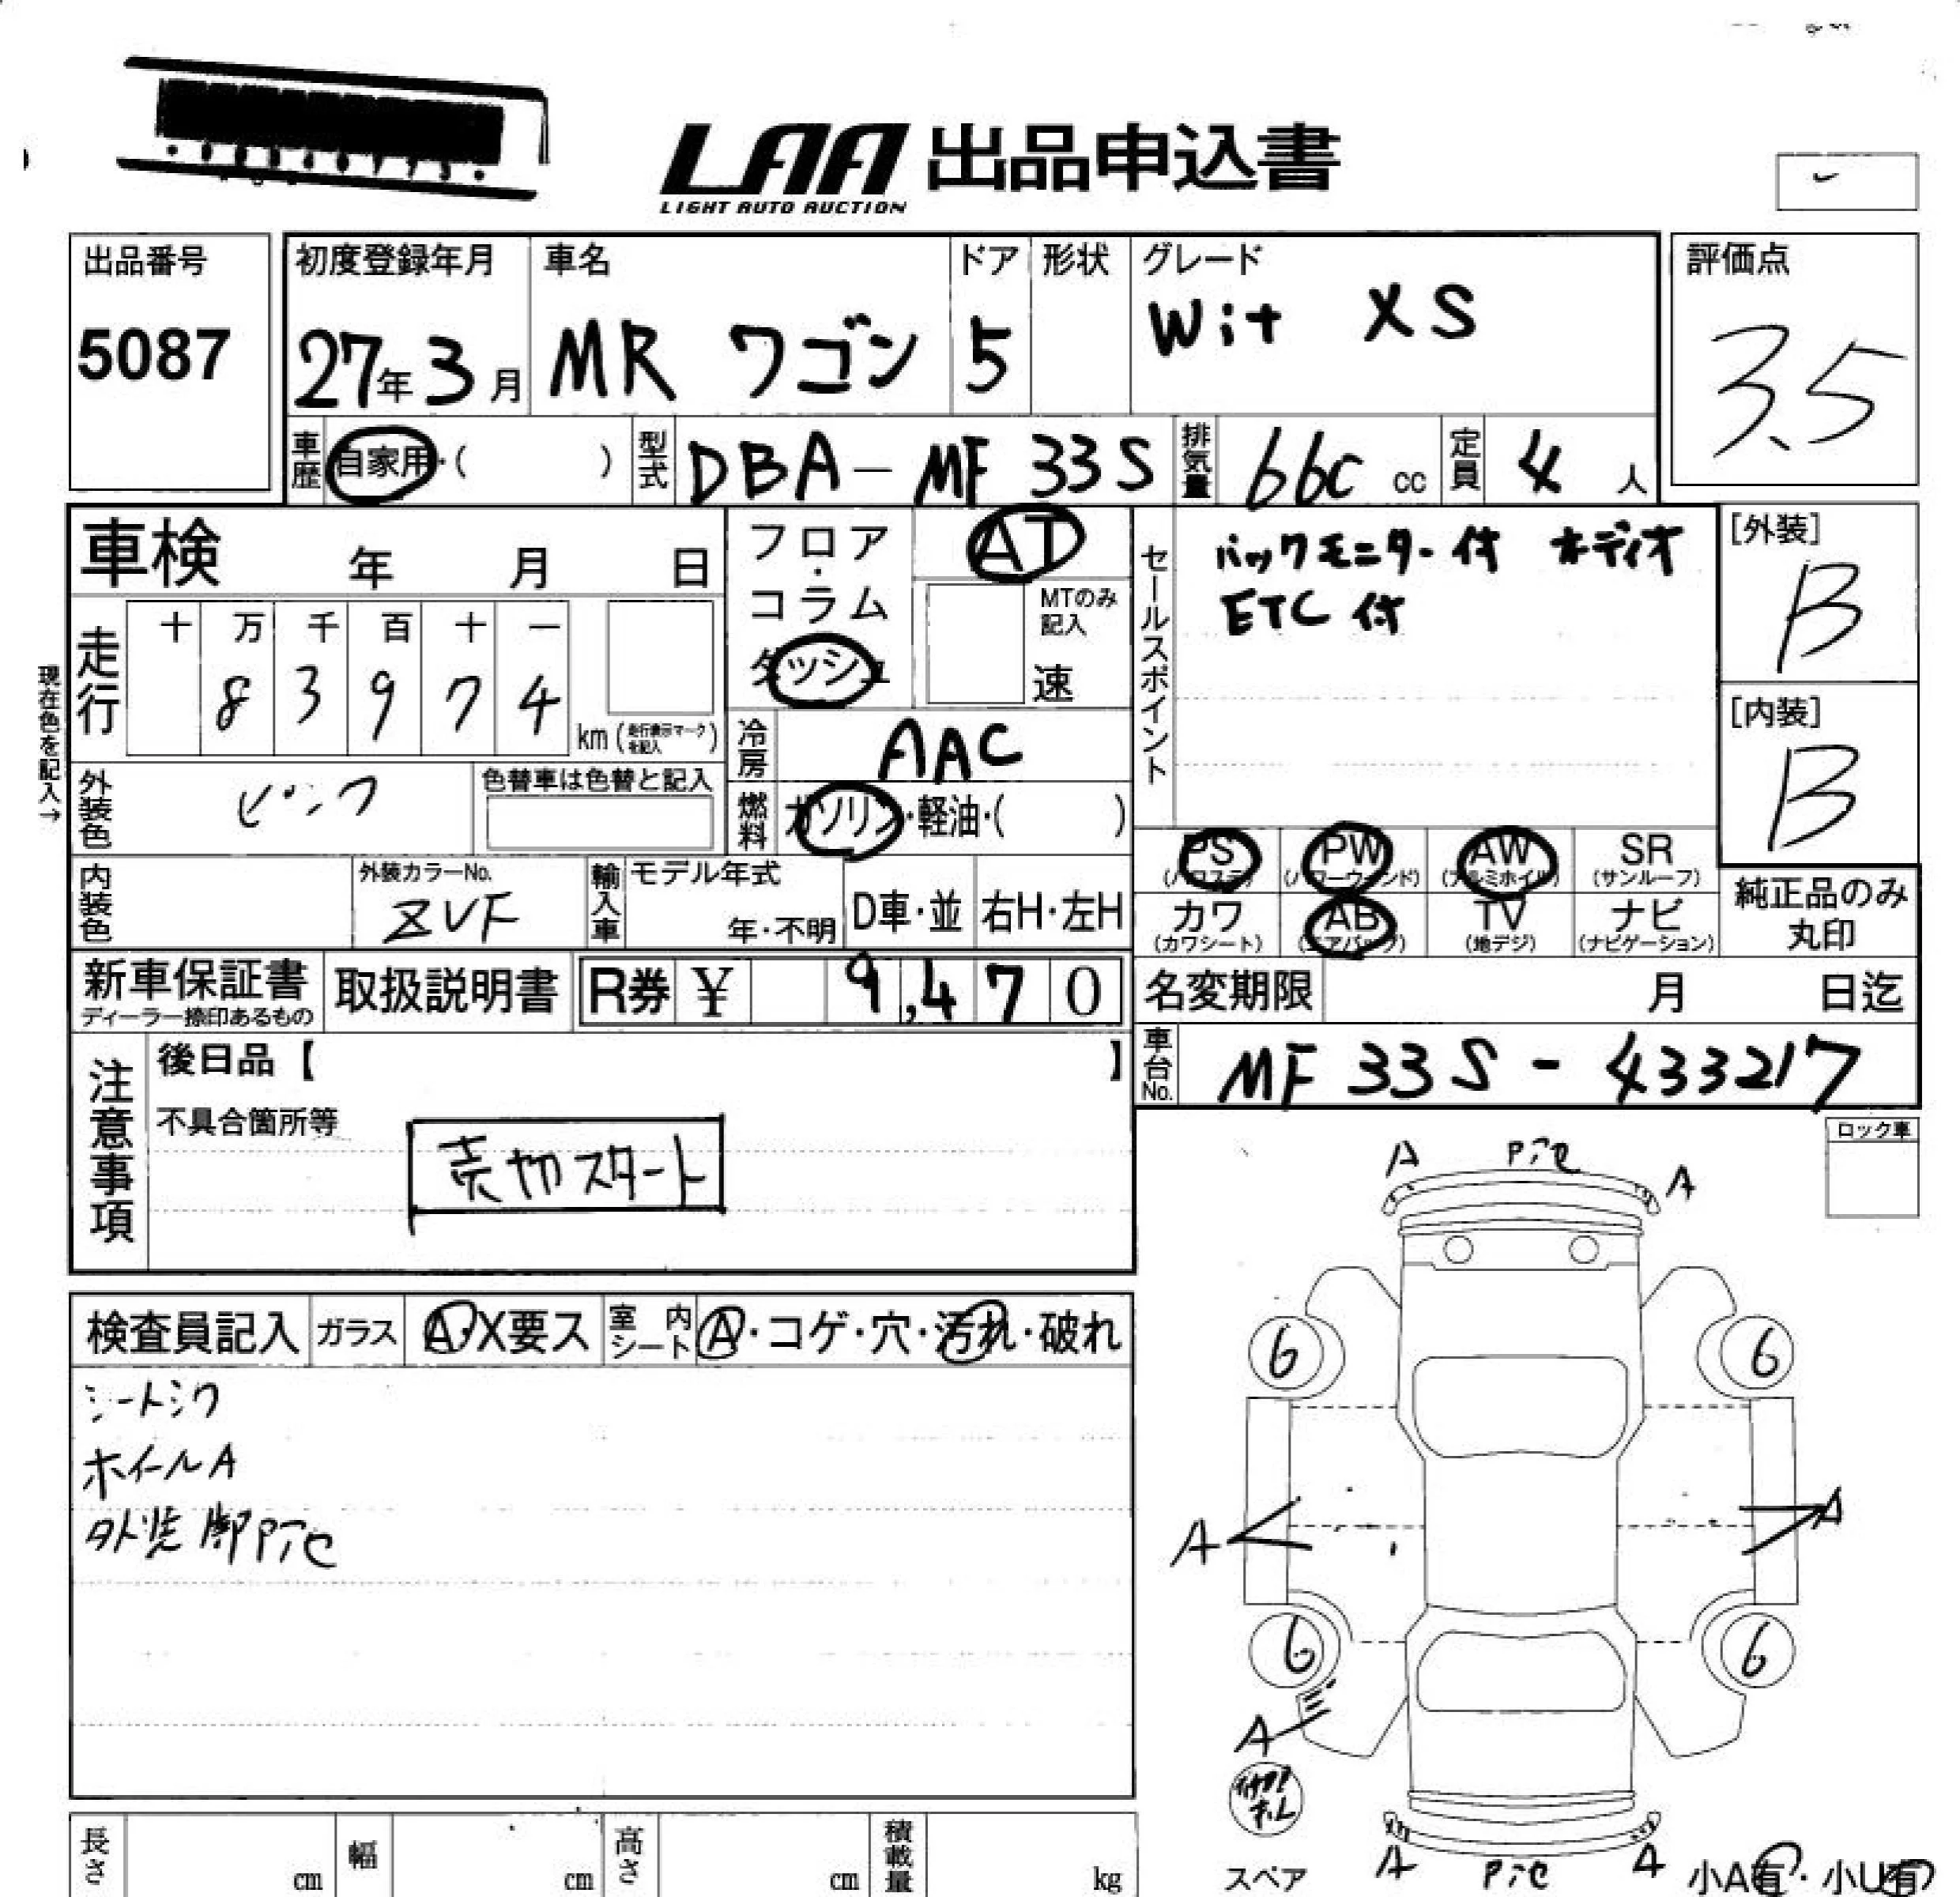 LAA 出品申込書
LIGHT AUTO AUCTION
出品番号
5087
初度登録年月
27年3月
車名
MR ワゴン
ドア
5
形状
グレード
Wit XS
評価点
3.5
車歴
自家用・( )
型式
DBA-MF33S
排気量
660 cc
定員
4 人
車検 年 月 日
フロア・コラム
ダッシュ
AT
MTのみ記入
速
セールスポイント
バックモニター付 オーディオ
ETC付
[外装]
B
[内装]
B
現在色を記入→
走行
十 万 千 百 十 一
8 3 9 7 4
km (走行表示マークを記入)
冷房
AAC
燃料
ガソリン・軽油・( )
外装色
ピンク
色替車は色替と記入
内装色
外装カラーNo.
ZVF
輸入車
モデル年式
年・不明
D車・並
右H・左H
PS (パワステ)
PW (パワーウィンド)
AW (アルミホイル)
SR (サンルーフ)
カワ (カワシート)
AB (エアバック)
TV (地デジ)
ナビ (ナビゲーション)
純正品のみ丸印
新車保証書
ディーラー捺印あるもの
取扱説明書
R券 ¥ 9,470
名変期限 月 日迄
車台No.
MF33S-433217
注意事項
後日品【 】
不具合箇所等
売切スタート
ロック車
検査員記入
ガラス
A・X要ス
室内シート
A・コゲ・穴・汚れ・破れ
シートシワ
ホイールA
A
A
6
6
A
A
6
6
A
スペア
A
A
小A有・小U有
長さ cm
幅 cm
高さ cm
積載量 kg